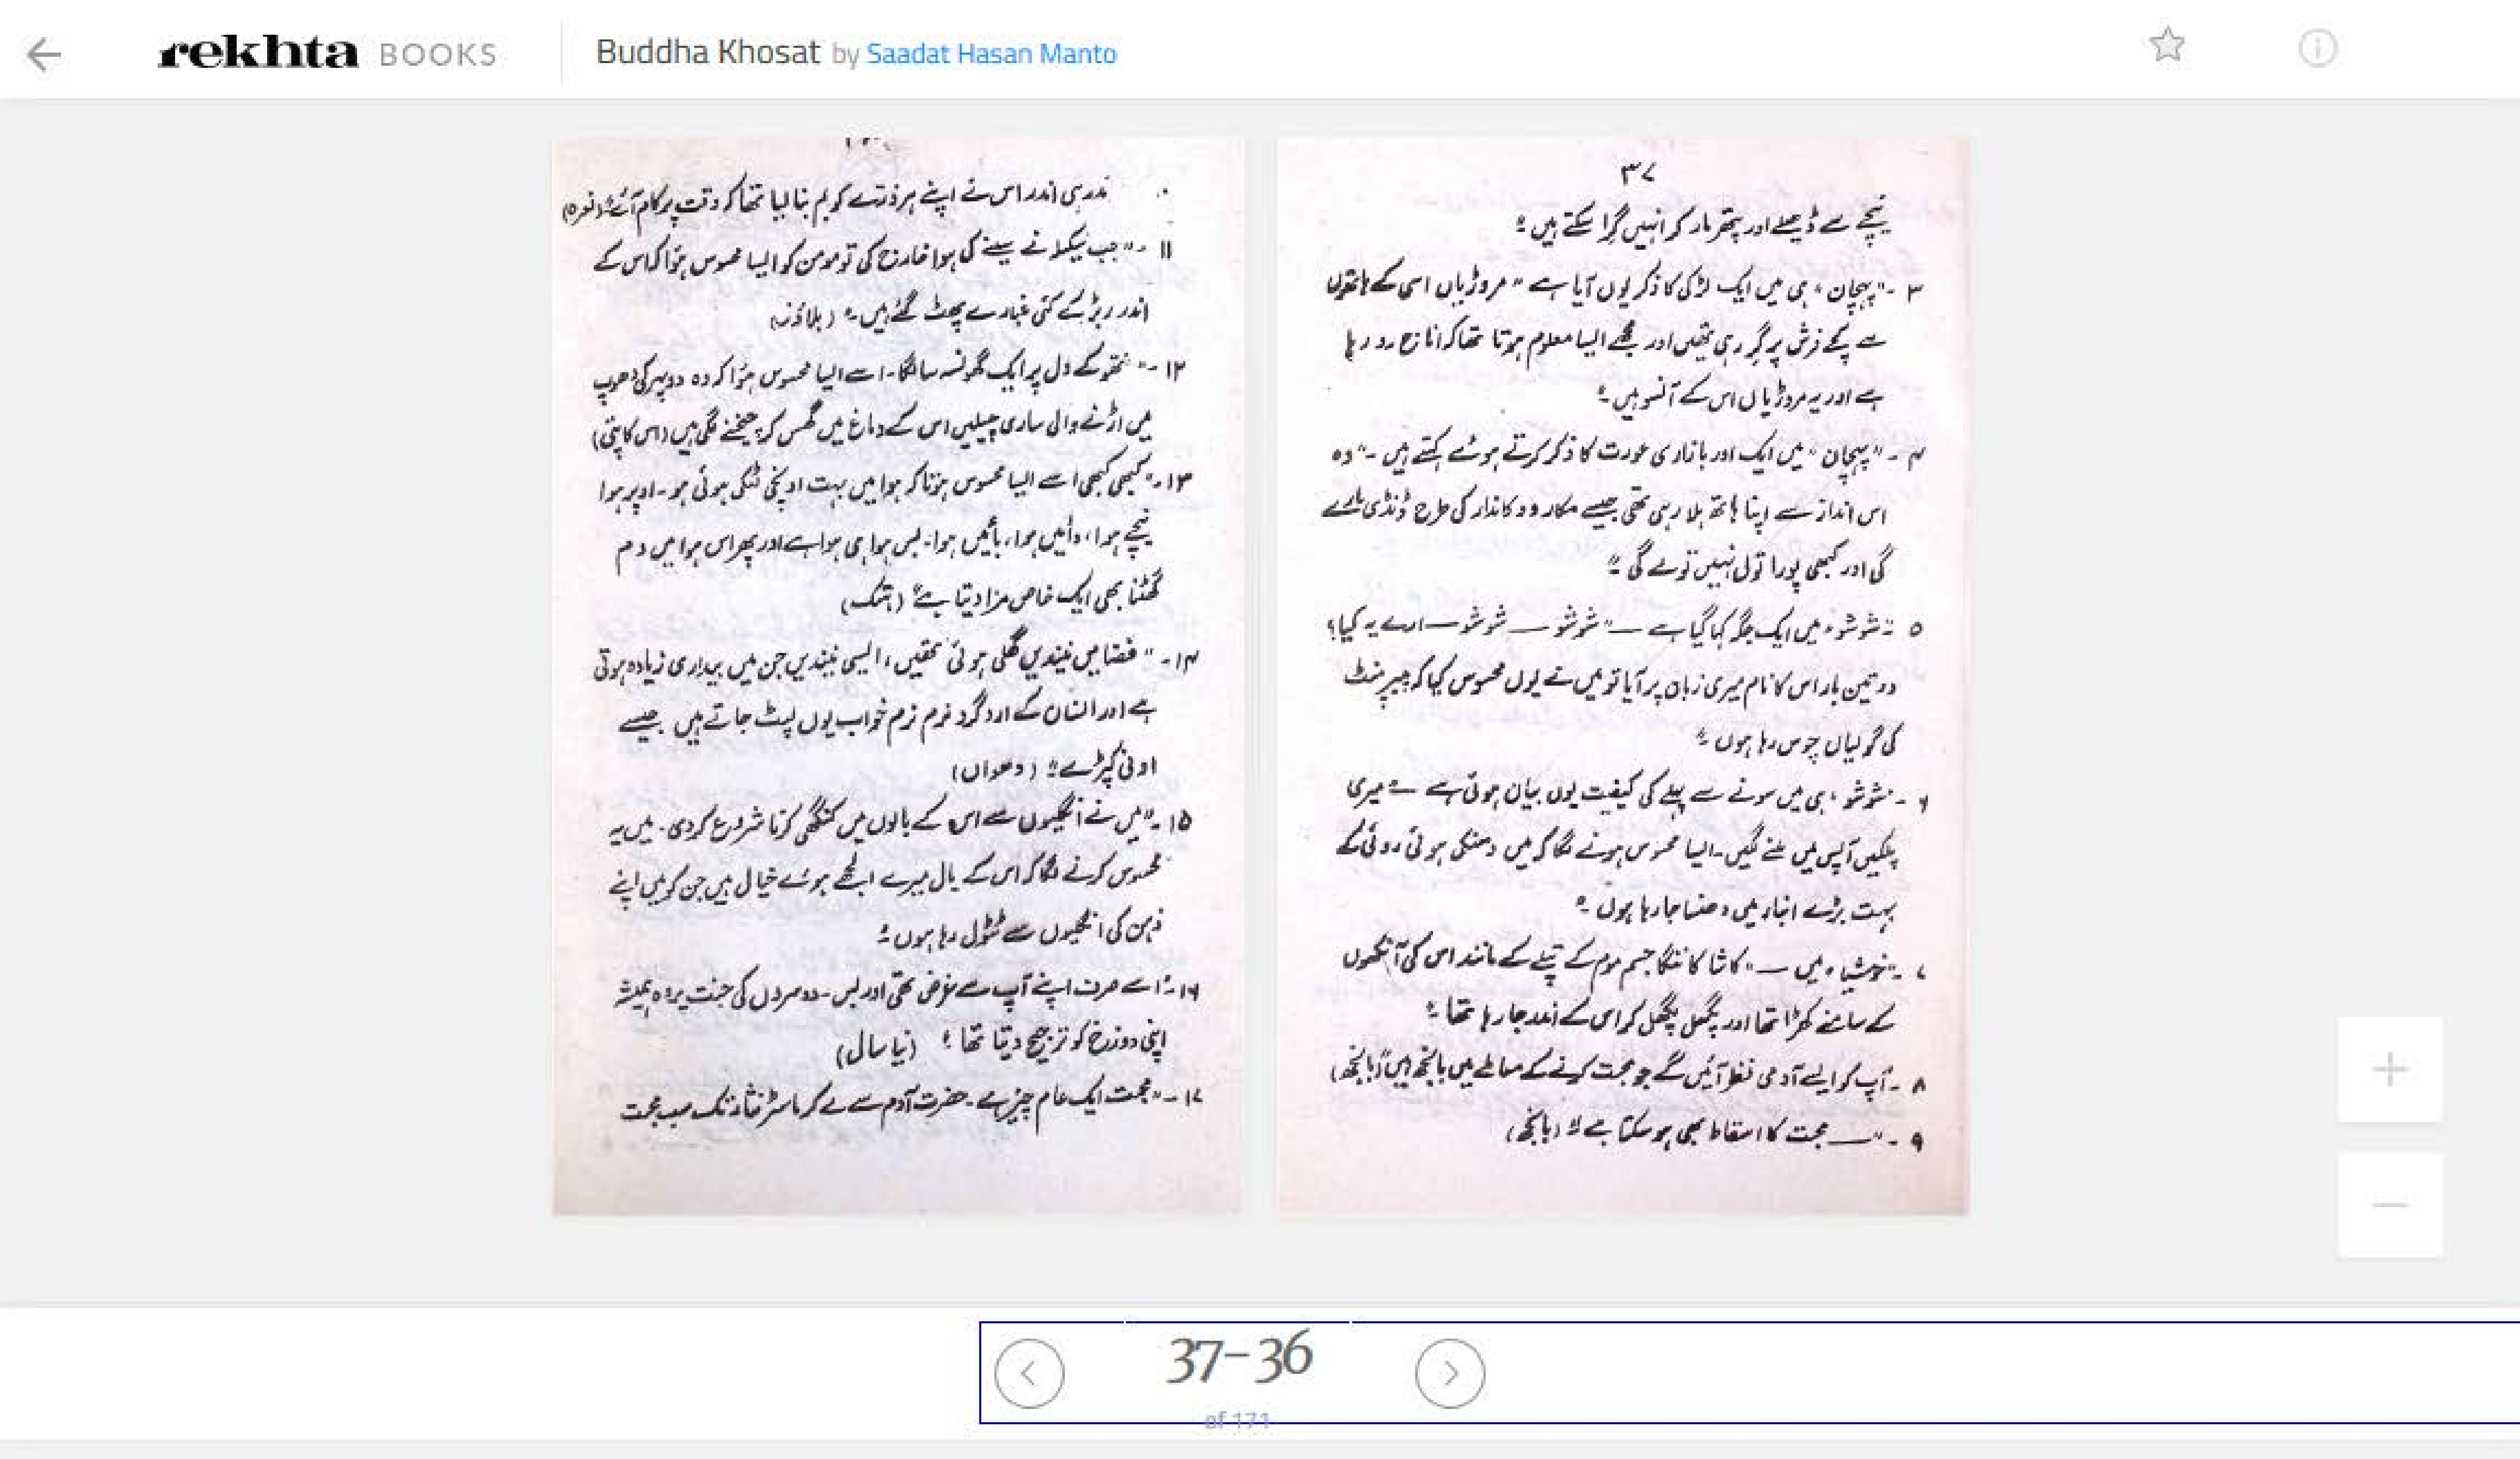 rekhta BOOKS
Buddha Khosat by Saadat Hasan Manto
۳۷
نیچے سے ڈھیلے اور پتھر مار کر انہیں گرا سکتے ہیں۔"
۳ ۔ "پہچان" ہی میں ایک لڑکی کا ذکر یوں آیا ہے "مروڑیاں اسی کے ہاتھوں
سے پکے فرش پر گر رہی تھیں اور مجھے ایسا معلوم ہوتا تھا کہ اناج رو رہا
ہے اور یہ مروڑیاں اس کے آنسو ہیں۔"
۴ ۔ "پہچان" میں ایک اور بازاری عورت کا ذکر کرتے ہوئے کہتے ہیں ۔ "وہ
اس انداز سے اپنا ہاتھ ہلا رہی تھی جیسے مکار دوکاندار کی طرح ڈنڈی مارے
گی اور کبھی پورا تول نہیں تولے گی۔"
۵ ۔ "شوشو" میں ایک جگہ کہا گیا ہے — "شوشو — شوشو — ارے یہ کیا؟
دو تین بار اس کا نام میری زبان پر آیا تو میں نے یوں محسوس کیا کہ پیپرمنٹ
کی گولیاں چوس رہا ہوں۔"
۶ ۔ "شوشو" ہی میں سونے سے پہلے کی کیفیت یوں بیان ہوئی ہے — "میری
پلکیں آپس میں ملنے لگیں۔ ایسا محسوس ہونے لگا کہ میں دھنکی ہوئی روئی کے
بہت بڑے انبار میں دھنسا جا رہا ہوں۔"
۷ ۔ "خوشیا" میں — "کانتا کا ننگا جسم موم کے پتلے کے مانند اس کی آنکھوں
کے سامنے کھڑا تھا اور پگھل پگھل کر اس کے اندر جا رہا تھا۔"
۸ ۔ "آپ کو ایسے آدمی نظر آئیں گے جو محبت کرنے کے معاملے میں بانجھ ہیں" (بانجھ)
۹ ۔ "— محبت کا اسقاط بھی ہو سکتا ہے" (بانجھ)
اندر ہی اندر اس نے اپنے ہر ذرے کو بم بنا لیا تھا کہ وقت پر کام آئے" (نعرہ)
۱۱ ۔ "جب شکیلہ نے سینے کی ہوا خارج کی تو مومن کو ایسا محسوس ہوا کہ اس کے
اندر ربڑ کے کئی غبارے پھٹ گئے ہیں۔" (بلاؤز)
۱۲ ۔ "نتھو کے دل پر ایک گھونسہ سا لگا۔ اسے ایسا محسوس ہوا کہ وہ دوپہر کی دھوپ
میں اڑنے والی ساری چیلیں اس کے دماغ میں گھس کر چیخنے لگی ہیں (اس کا پتی)
۱۳ ۔ "کبھی کبھی اسے ایسا محسوس ہوتا کہ ہوا میں بہت اونچی ٹنگی ہوئی ہو۔ اوپر ہوا
نیچے ہوا، دائیں ہوا، بائیں ہوا۔ بس ہوا ہی ہوا ہے اور پھر اس ہوا میں دم
گھٹنا بھی ایک خاص مزا دیتا ہے" (ہتک)
۱۴ ۔ "فضا میں نیندیں گھلی ہوئی تھیں، ایسی نیندیں جن میں بیداری زیادہ ہوتی
ہے اور انسان کے اردگرد نرم نرم خواب یوں لپٹ جاتے ہیں جیسے
اونی کپڑے۔" (دھواں)
۱۵ ۔ "میں نے انگلیوں سے اس کے بالوں میں کنگھی کرنا شروع کر دی۔ میں یہ
محسوس کرنے لگا کہ اس کے بال میرے الجھے ہوئے خیال ہیں جن کو میں اپنے
ذہن کی انگلیوں سے ٹٹول رہا ہوں۔"
۱۶ ۔ "اسے صرف اپنے آپ سے غرض تھی اور بس۔ دوسروں کی جنت پر وہ ہمیشہ
اپنی دوزخ کو ترجیح دیتا تھا" (نیا سال)
۱۷ ۔ "محبت ایک عام چیز ہے۔ حضرت آدم سے لے کر ماسٹر نثار تک سب محبت
37-36
of 171